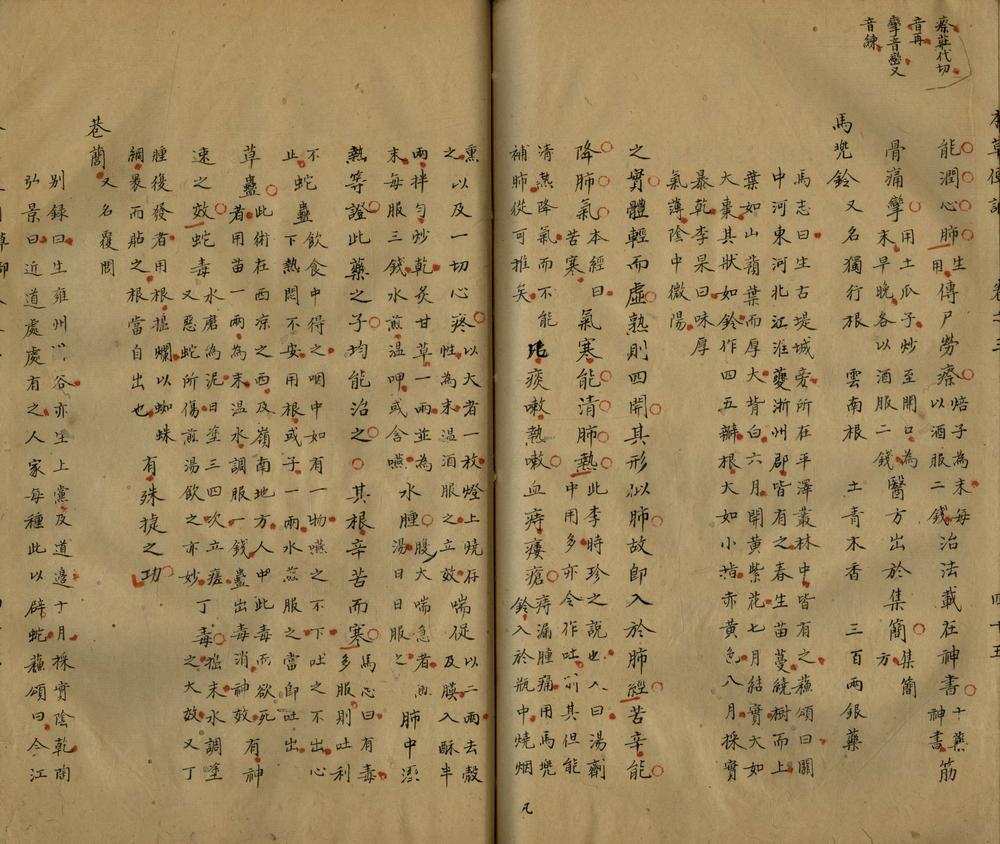 瘵莊代切
音再
攣音巒又
音練
能潤心肺
生
用
傳尸勞瘵
焙子為末每
以酒服二錢
治法載在神書
十藥
神書
筋
骨痛攣
用土瓜子炒至開口為
末早晚各以酒服二錢
醫方出於集簡
集簡
方
馬兜鈴
又名獨行根　雲南根　土青木香　三百兩銀藥
馬志曰生古堤城旁所在平澤叢林中皆有之蘇頌曰關
中河東河北江淮夔浙州郡皆有之春生苗蔓繞樹而上
葉如山蕷葉而厚大背白六月開黃紫花七月結實大如
大棗其狀如鈴作四五瓣根大如小指赤黃色八月採實
暴乾李杲曰味厚
氣薄陰中微陽
之實體輕而虛熟則四開其形似肺故即入於肺經苦辛能
降肺氣
本經曰
苦寒
氣寒能清肺熱
此李時珍之說也又曰湯劑
中用多亦令作吐其但能
清熱降氣而不能
補肺從可推矣
痰嗽熱嗽血痔瘻瘡
痔漏腫痛用馬兜
鈴入於瓶中燒烟
凡
熏
之
以及一切心疼
以大者一枚燈上燒存
性為末温酒服之立效
喘促
以二兩去殼
及膜入酥半
兩拌勻炒乾炙甘草一兩並為
末每服三錢水煎温呷或含嚥
水腫
腹大喘急者
湯日日服之
肺中濕
熱等證此藥之子均能治之　其根辛苦而寒
馬志曰有毒
多服則吐利
不
止
蛇蠱
飲食中得之咽中如有一物嚥之不下吐之不出心
下熱悶不安用根或子一兩水煎服之當即吐出
草蠱
此術在西凉之西及嶺南地方人中此毒而欲死
者用苗一兩為末温水調服一錢蠱出毒消神效
有神
速之效
蛇毒
水磨為泥日塗三四次立瘥
又惡蛇所傷煎湯飲之亦妙
丁毒
搗末水調塗
之大效又丁
腫後發者用根搗爛以蜘蛛
網裹而貼之根當自出也
有殊㨗之功
巷藺
又名覆閭
别録曰生雍州谷亦生上黨及道邊十月採實陰乾陶
弘景曰近道處處有之人家每種此以辟蛇蘇頌曰今江